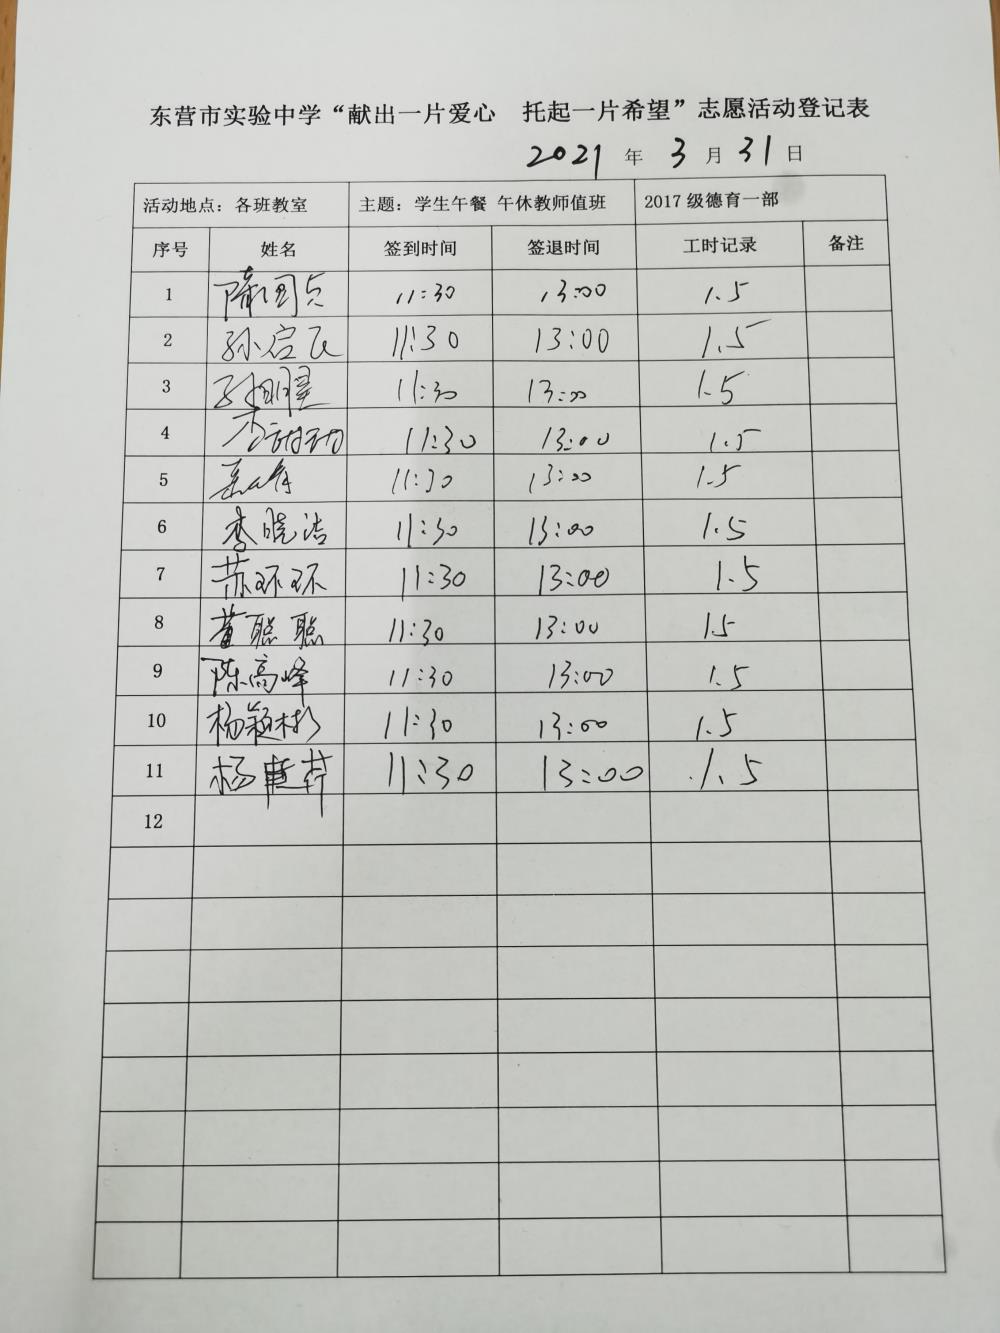 东营市实验中学“献出一片爱心 托起一片希望”志愿活动登记表
2021 年 3 月 31 日
活动地点：各班教室 主题：学生午餐 午休教师值班 2017 级德育一部
序号 姓名 签到时间 签退时间 工时记录 备注
1 隋国贞 11:30 13:00 1.5
2 孙启民 11:30 13:00 1.5
3 11:30 13:00 1.5
4 李甜甜 11:30 13:00 1.5
5 11:30 13:00 1.5
6 李晓洁 11:30 13:00 1.5
7 苏环环 11:30 13:00 1.5
8 董聪聪 11:30 13:00 1.5
9 陈高峰 11:30 13:00 1.5
10 杨颖彬 11:30 13:00 1.5
11 杨 11:30 13:00 1.5
12